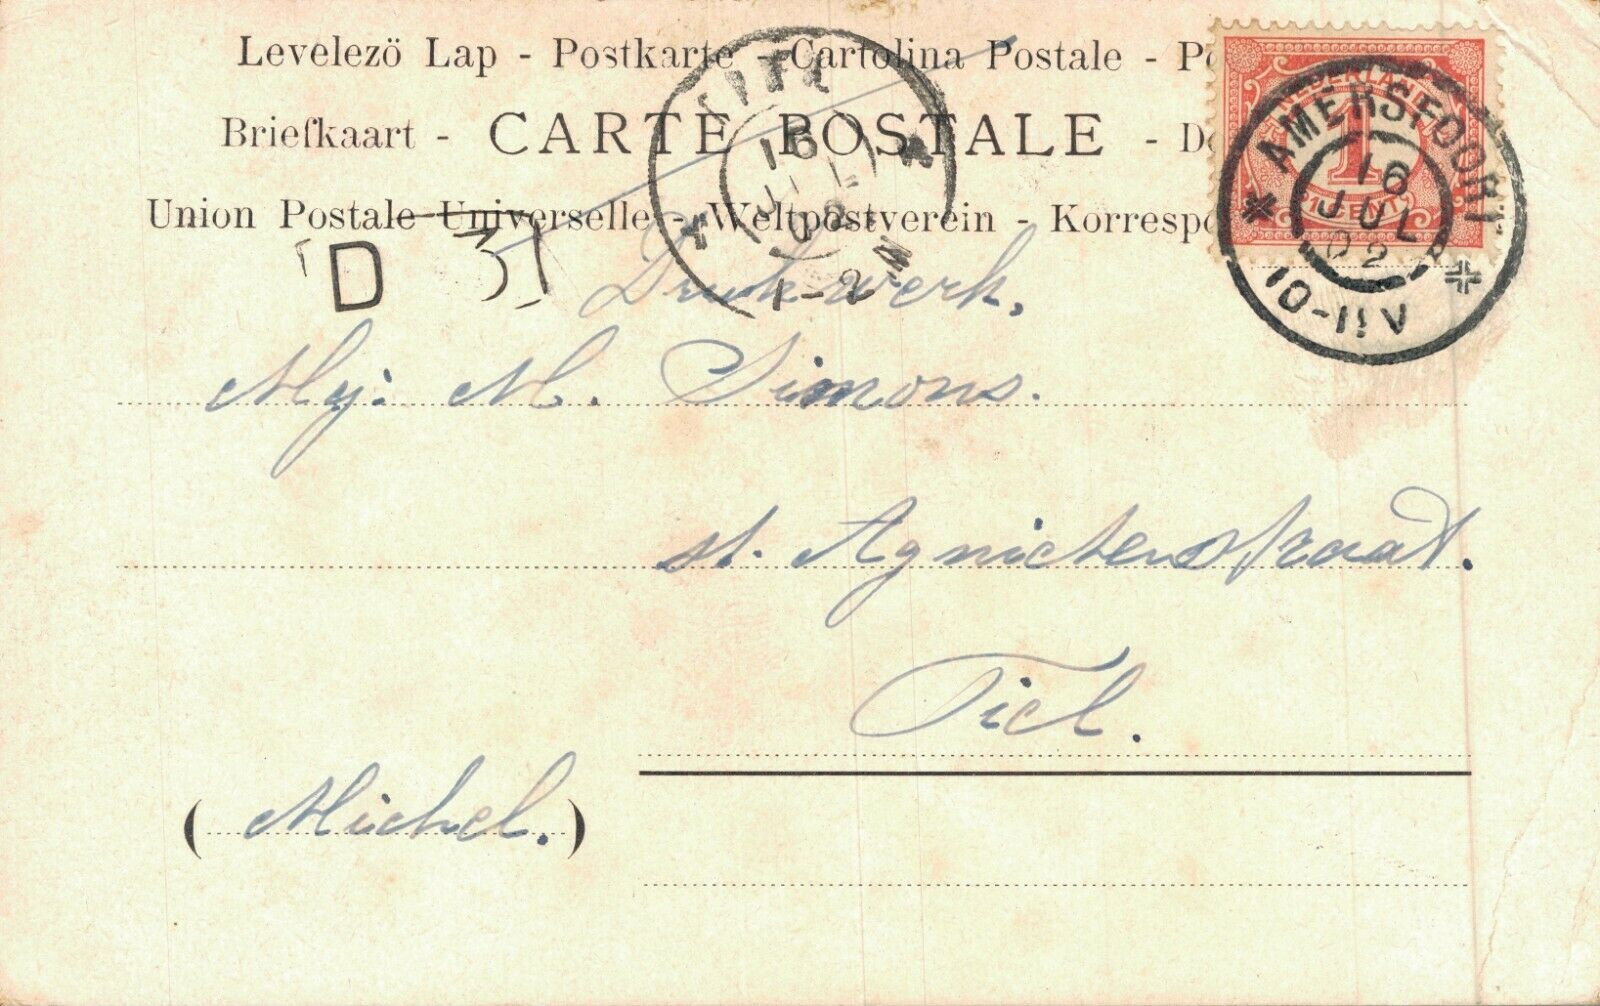 Levelezö Lap - Postkarte - Cartolina Postale - P
Briefkaart - CARTE POSTALE - D
Union Postale Universelle - Weltpostverein - Korresp
NEDERLA
1
1 CENT
AMERSFOORT
16
JUL
02
10-11V
TIEL
16
JUL
02
1-2 N
D 31
Drukwerk,
Mej: M. Simons.
st. Agnietenstraat.
Tiel.
(Michel.)